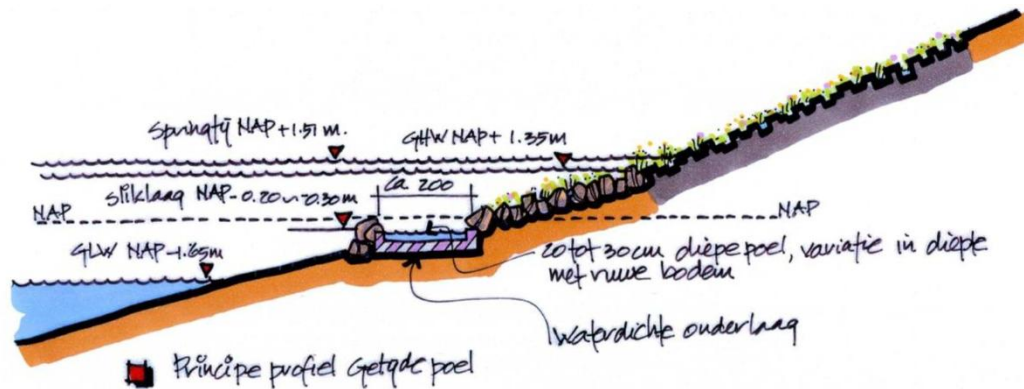 Springtij NAP+1.51 m.
GHW NAP+ 1.35m
Sliklaag NAP-0.20~-0.30m
ca. 200
NAP
NAP
GLW NAP-1.65m
20 tot 30cm diepe poel, variatie in diepte
met ruwe bodem
Waterdichte onderlaag
Principe profiel Getijde poel